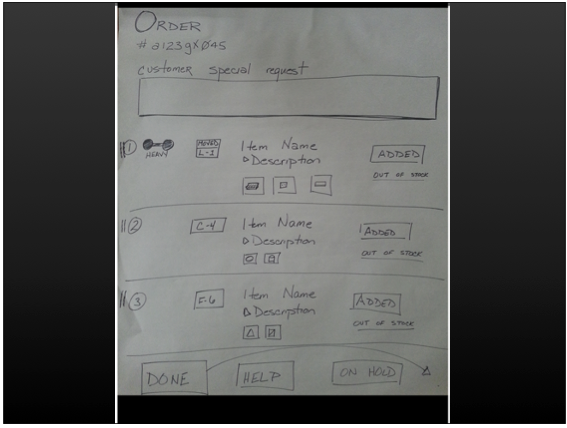 ORDER
# a123gx045
customer special request
1
HEAVY
MOVED
L-1
Item Name
Description
ADDED
OUT OF STOCK
2
C-4
Item Name
Description
ADDED
OUT OF STOCK
3
F-6
Item Name
Description
ADDED
OUT OF STOCK
DONE
HELP
ON HOLD